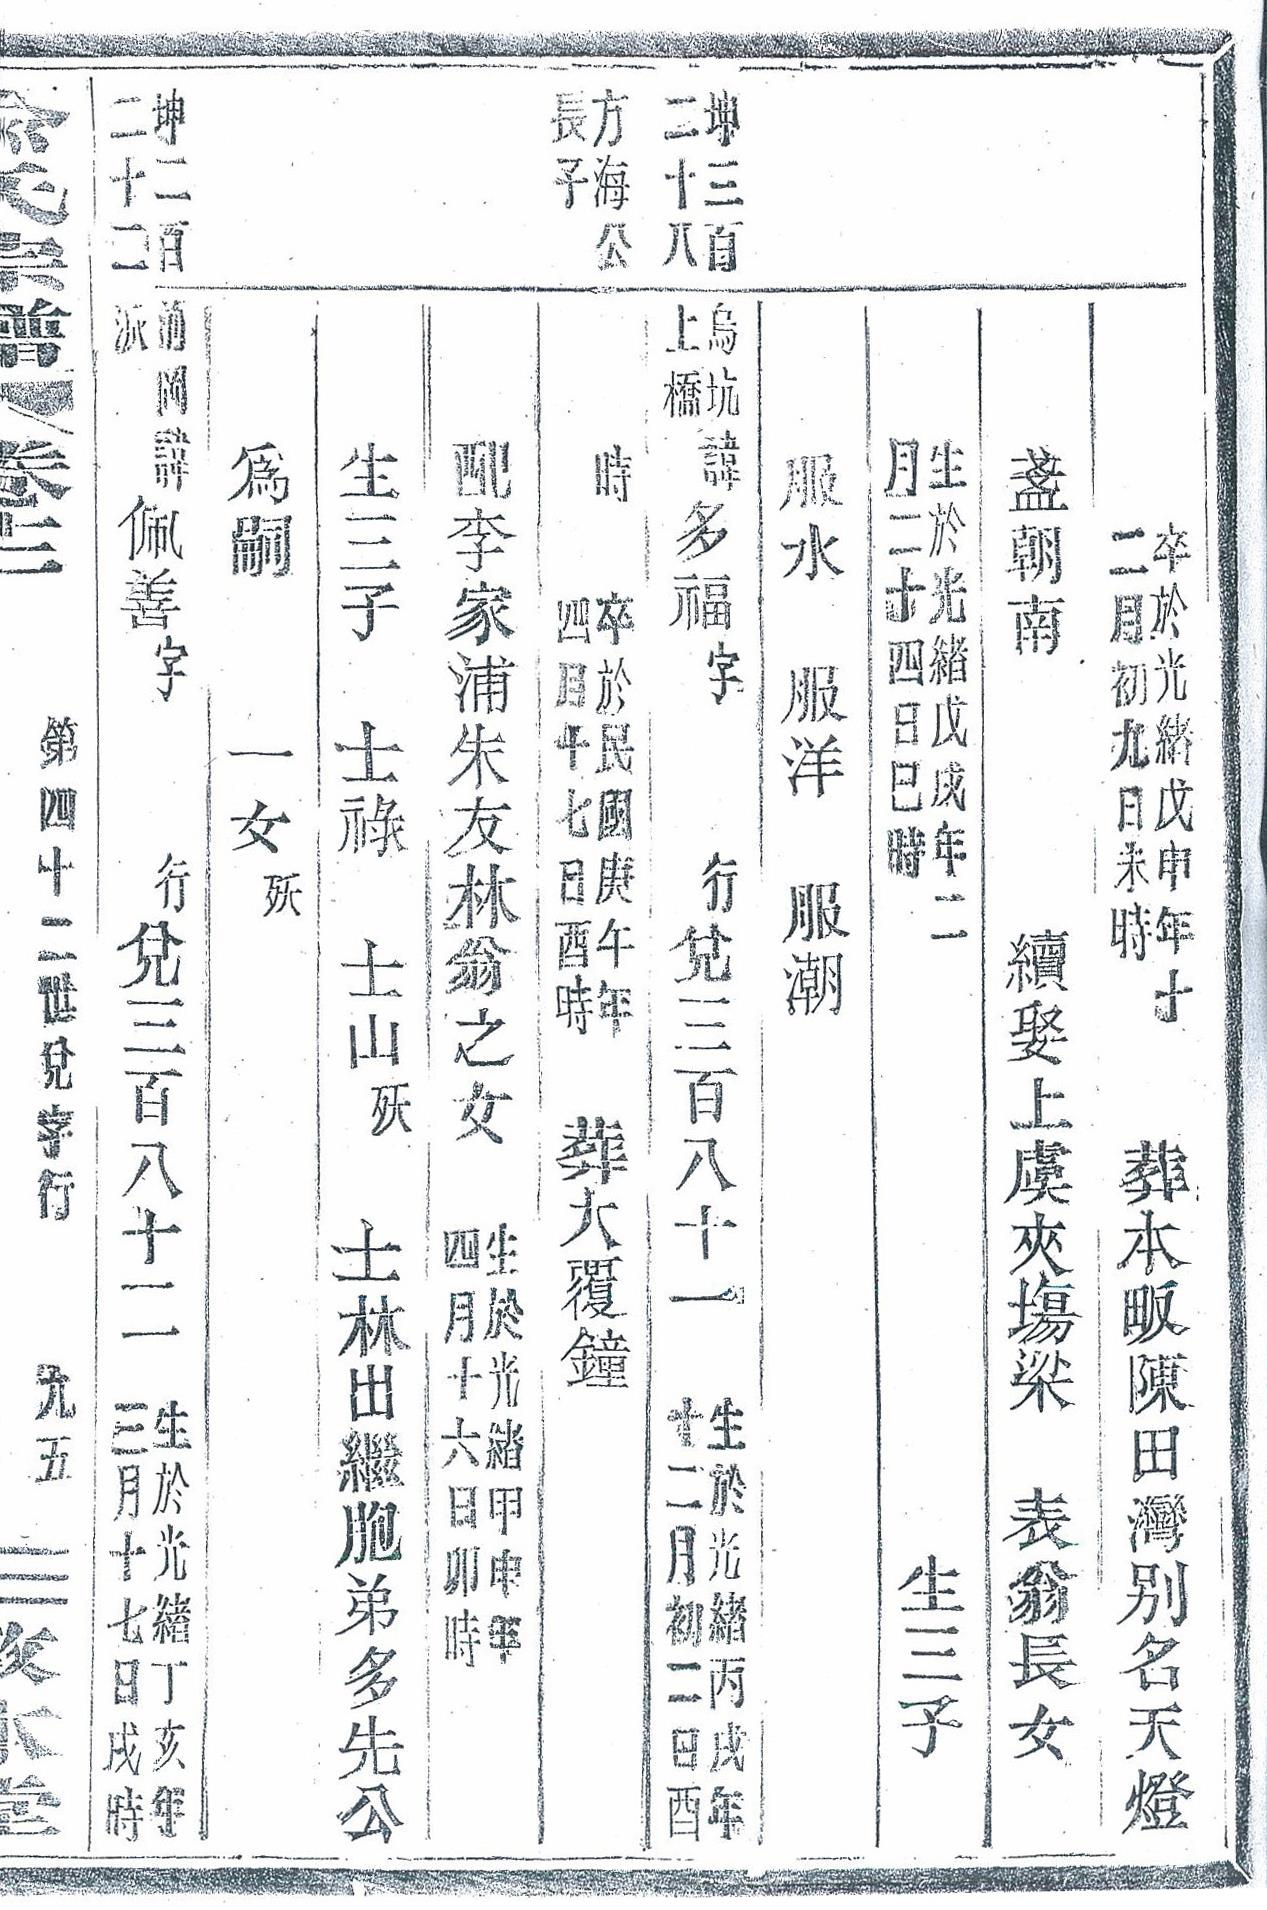 卒於光緒戊申年十
二月初九日未時
葬本畈陳田灣别名天燈
盞朝南
續娶上虞夾塲梁
表翁長女
生於光緒戊戌年二
月二十四日巳時
生三子
服水 服洋 服潮
坤三百
二十八
烏坑
上橋
諱多福字
行兌三百八十一
生於光緒丙戌年
十二月初二日酉
方海公
長子
時
卒於民國庚午年
四月十七日酉時
葬大覆鐘
配李家浦朱友林翁之女
生於光緒甲申年
四月十六日卯時
生三子 士祿 士山殀 士林出繼胞弟多先公
爲嗣 一女殀
坤二百
二十二
派
諱佩善字
行兌三百八十二
生於光緒丁亥年
三月十七日戌時
俞氏宗譜 卷十二
第四十二世兌字行
九五
三汲堂